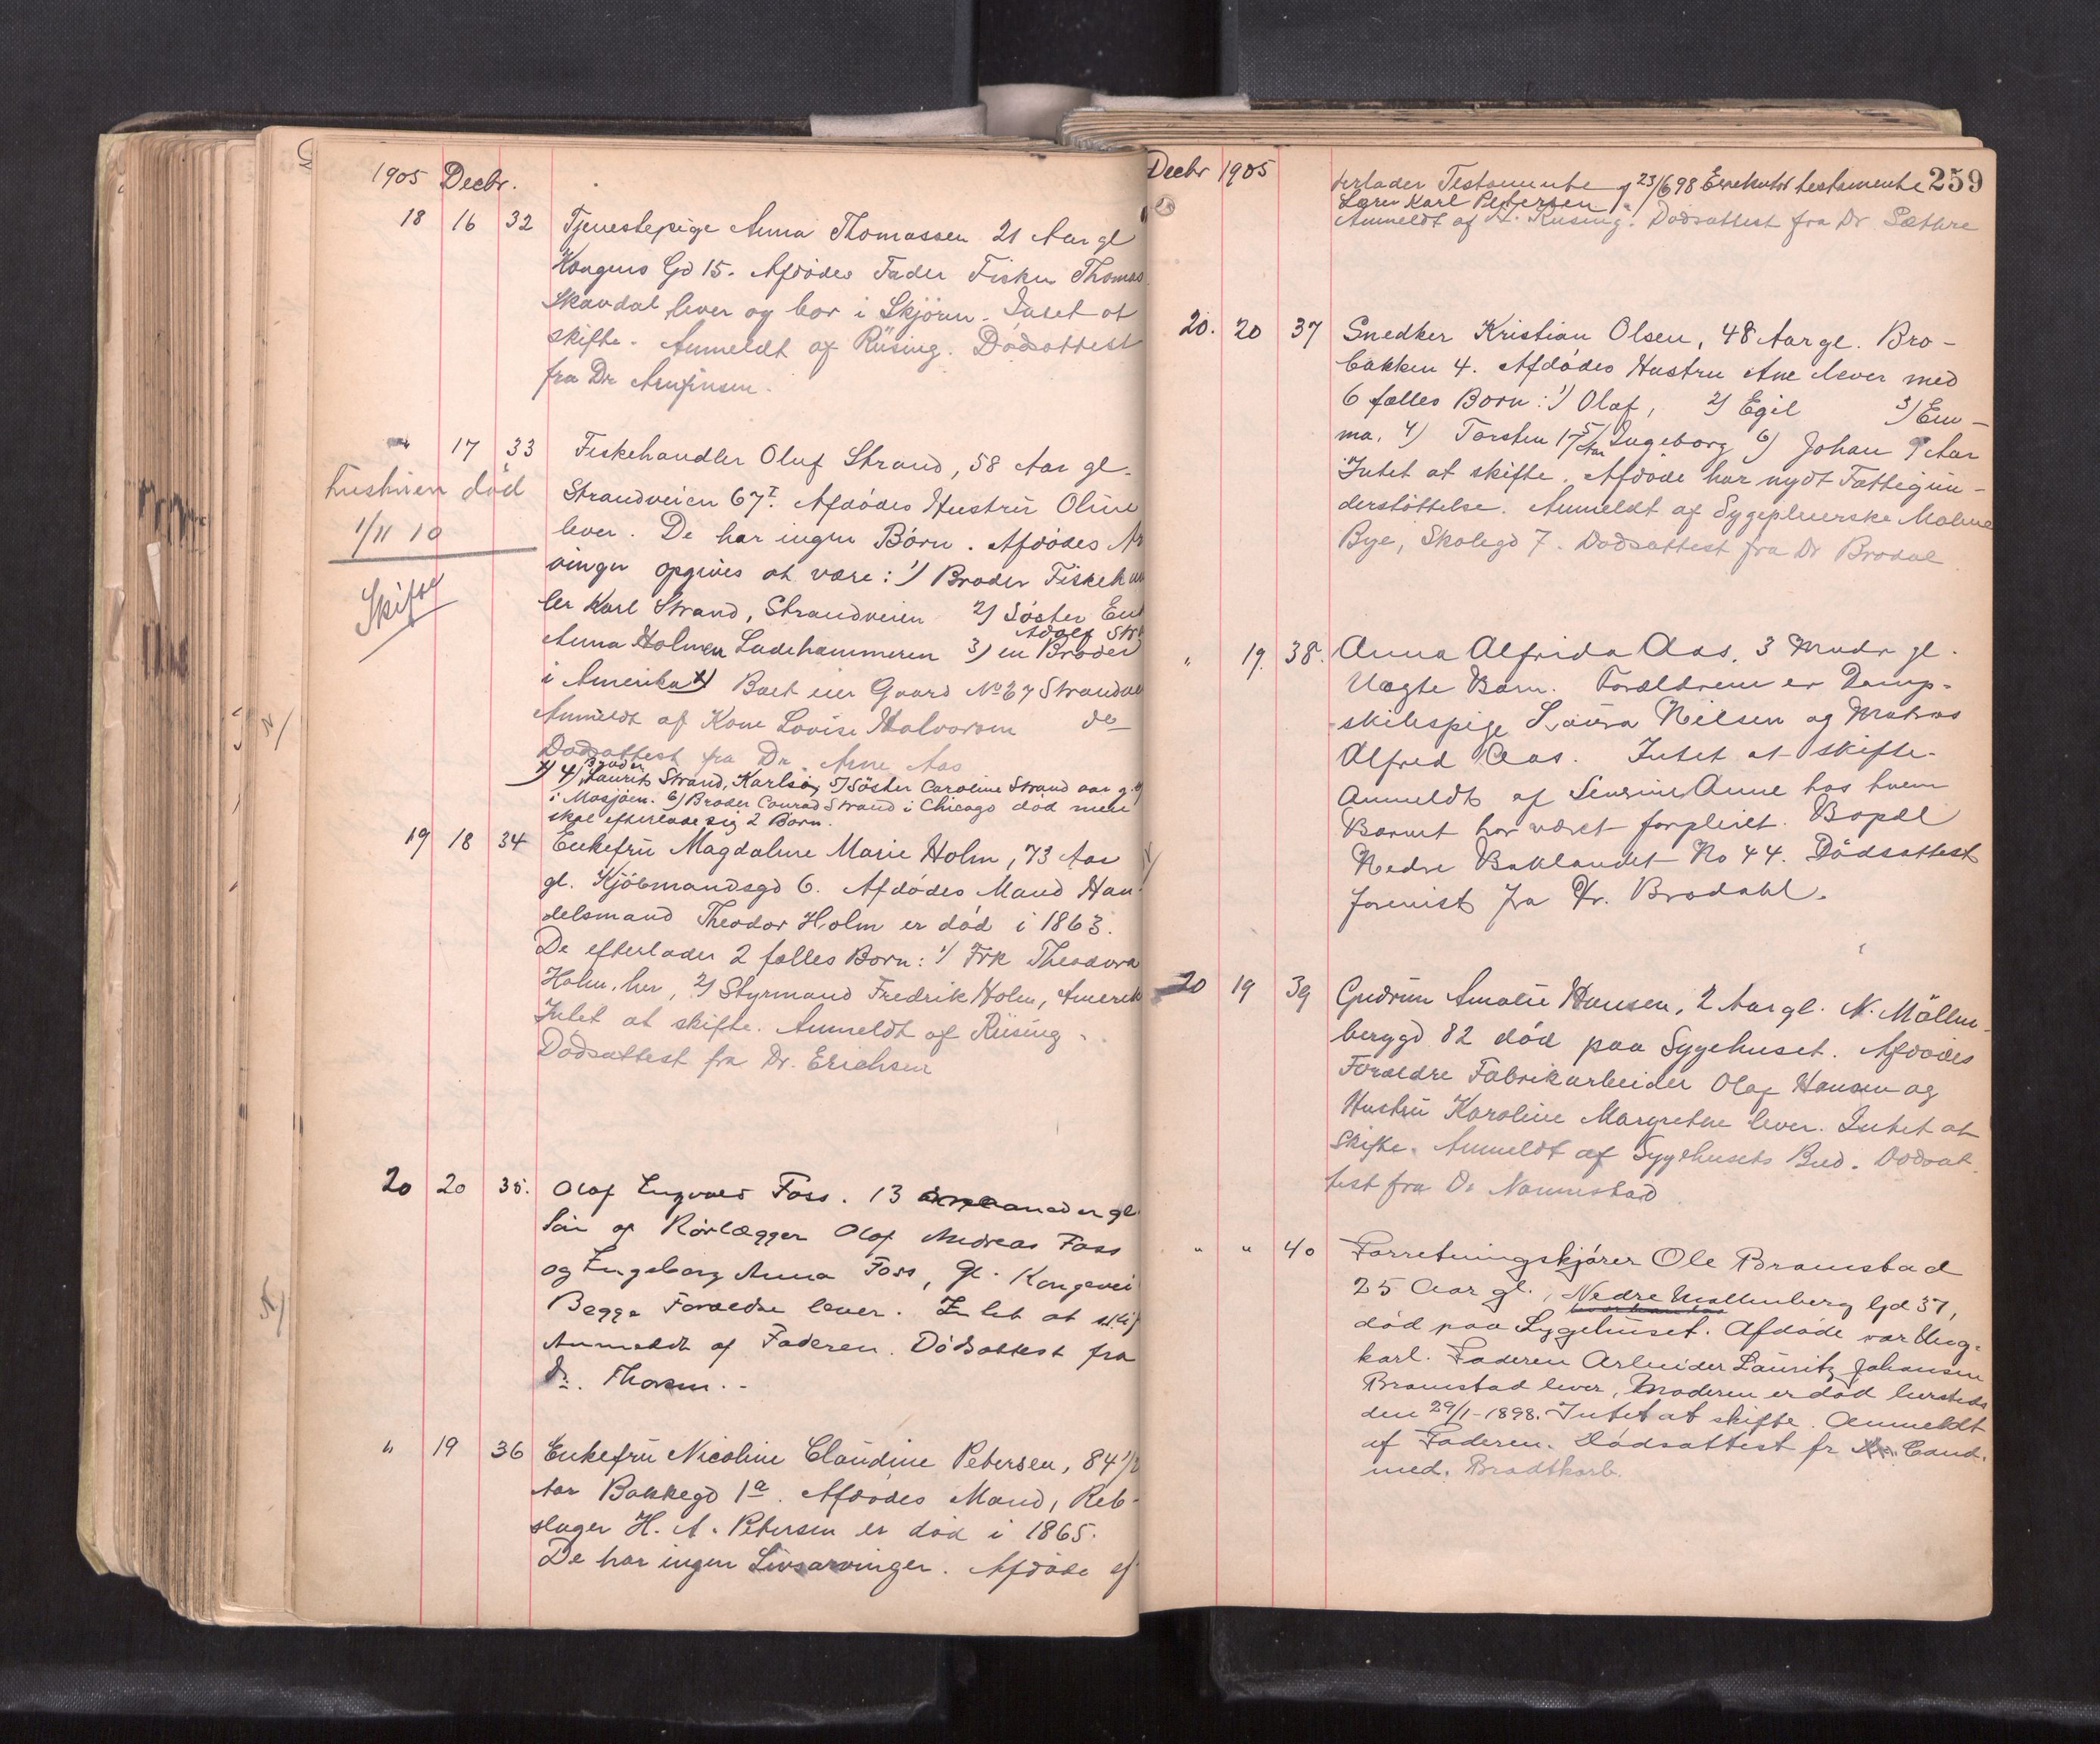 1905 Decbr.
18 16 32 Tjenestepige Anna Thomassen 21 Aar gl
Kongens Gd 15. Afdödes Fader Fisker Thomas
Skavdal lever og bor i Skjörn. Intet at
skifte. Anmeldt af Rüsing. Dödsattest
fra Dr Arnfinsen.
" 17 33 Fiskehandler Oluf Strand, 58 Aar gl.
Hustruen död
1/11 10
Skifte
Strandveien 67 I. Afdödes Hustru Oline
lever. De har ingen Börn. Afdödes Ar
vinger opgives at være: 1) Broder Fiskehan
ler Karl Strand, Strandveien 2) Söster Enk
Adolf Str
Anna Holmen Ladehammeren 3) en Broder
i Amerika x) Boet eier Gaard No 67 Strandve
Anmeldt af Kone Lovise Halvorsen do
Dödsattest fra Dr. Arne Aas
Broder
x) 4) Laurits Strand, Karlsö, 5) Söster Caroline Strand
i Mosjöen. 6) Broder Conrad Strand i Chicago död men
skal efterlade sig 2 Börn.
19 18 34 Enkefru Magdalene Marie Holm, 73 Aar
gl. Kjöbmandsgd 6. Afdödes Mand Han
delsmand Theodor Holm er död i 1863.
De efterlader 2 fælles Börn: 1) Frk Theodora
Holm, her, 2) Styrmand Fredrik Holm, Amerik
Intet at skifte. Anmeldt af Rüsing.
Dödsattest fra Dr. Erichsen
20 20 35. Olaf Engvald Foss. 13 maaneder gl
Sön af Rörlægger Olaf Andreas Foss
og Engeborg Anna Foss, Gl. Kongevei
Begge Forældre lever. Intet at skif
Anmeldt af Faderen. Dödsattest fra
Dr. Thorsen.
" 19 36 Enkefru Nicoline Claudine Petersen, 84 1/2
Aar Bakkegd 1a. Afdödes Mand, Reb-
slager H. A. Petersen er död i 1865.
De har ingen Livsarvinger. Afdöde ef
Decbr 1905
259
terlader Testamente af 23/6 98 Exekutor testamente
Lærer Karl Petersen
Anmeldt af H. Rüsing. Dödsattest fra Dr Sæthre
20. 20 37 Snedker Kristian Olsen, 48 Aar gl. Bro-
bakken 4. Afdödes Hustru Ane lever med
6 fælles Börn: 1) Olaf, 2) Egil 3) Em-
ma, 4) Torsten 17 Aar 5) Ingeborg 6) Johan 9 Aar
Intet at skifte. Afdöde har nydt Fattigun-
derstöttelse. Anmeldt af Sygepleierske Malene
Bye, Skolegd 7. Dödsattest fra Dr Brodal
" 19. 38. Anna Alfrida Aas, 3 Mndr gl.
Uægte Barn. Forældrene er Damp-
skibspige Laura Nilsen og Matros
Alfred Aas. Intet at skifte.
Anmeldt af Sevrine Anne hos hvem
Barnet har været forpleiet. Bopæl
Nedre Baklandet No 44. Dödsattest
forevist fra Dr. Brodahl.
20 19 39 Gudrun Amalie Hansen, 2 Aar gl. N. Möllen-
bergd 82 död paa Sygehuset. Afdödes
Forældre Fabrikarbeider Olaf Hansen og
Hustru Karoline Margrethe lever. Intet at
skifte. Anmeldt af Sygehusets Bud. Dödsat-
test fra Dr Nannestad
" " 40 Forretningskjörer Ole Bromstad
25 Aar gl., Nedre Mollenberg Gd 37,
död paa Sygehuset. Afdöde var Ung-
karl. Faderen Arbeider Lauritz Johansen
Bromstad lever, Moderen er död hersteds
den 29/1-1898. Intet at skifte. Anmeldt
af Faderen. Dödsattest fr Cand.
med. Bradtkorb.